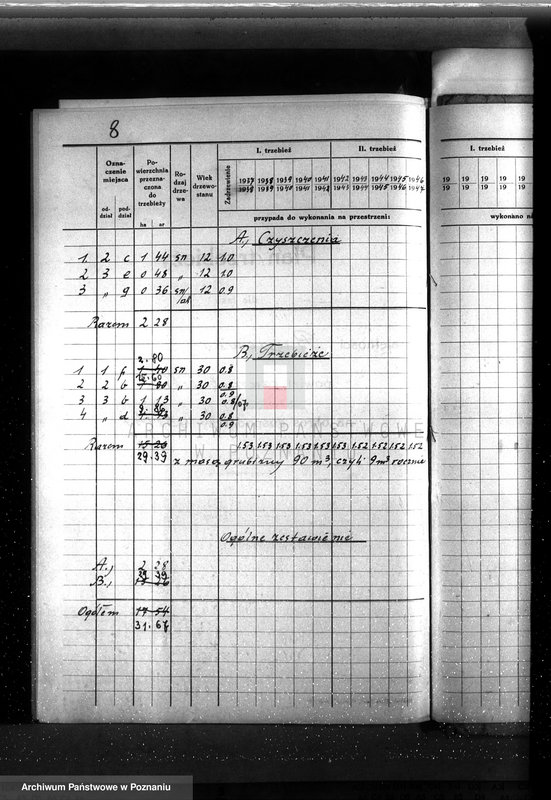 8
Ozna-
czenie
miejsca
od-
dział
pod-
dział
Po-
wierzchnia
przezna-
czona
do
trzebieży
ha ar
Ro-
dzaj
drze-
wa
Wiek
drzewo-
stanu
Zadrzewienie
I. trzebież II. trzebież
1937 1938 1939 1940 1941 1942 1943 1944 1945 1946
1938 1939 1940 1941 1942 1943 1944 1945 1946 1947
przypada do wykonania na przestrzeni:
A., Czyszczenia
1 2 c 1 44 sn 12 1.0
2 3 e 0 48 „ 12 1.0
3 „ g 0 36 sn/ 12 0.9
Razem 2 28
B., Trzebieże
2.80
1 1 f 1 40 sn 30 0.8
12.60
2 2 b 1 80 „ 30 0.8
0.9
3 3 b 1 13 „ 30 0.8/0.7
4 „ d „ 30 0.8
0.9
Razem 15 26 1.53 1.53 1.53 1.53 1.53 1.53 1.52 1.52 1.52 1.52
29.39 z masą grubizny 90 m³, czyli 9 m³ rocznie
Ogólne zestawienie
A., 2 28
29 39
B., 15 26
Ogółem 17 54
31.67
I. trzebież
19 19 19 19
19 19 19 19
wykonano na
ARCHIWUM PAŃSTWOWE
W POZNANIU
Archiwum Państwowe w Poznaniu